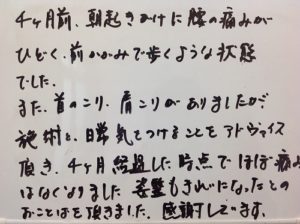 4ヶ月前、朝起きがけに腰の痛みが
ひどく、前かがみで歩くような状態
でした。
また、首のこり、肩こりがありましたが、
施術と、日常気をつけることをアドヴァイス
頂き、4ヶ月経過した時点でほぼ痛み
はなくなりました 姿整もきれいになったとの
おことばを頂きました。感謝しています。